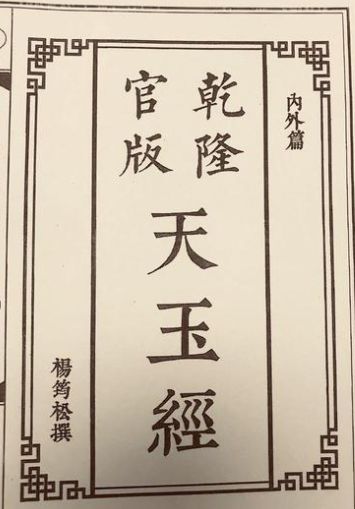 內外篇
乾隆
官版
天玉經
楊筠松撰